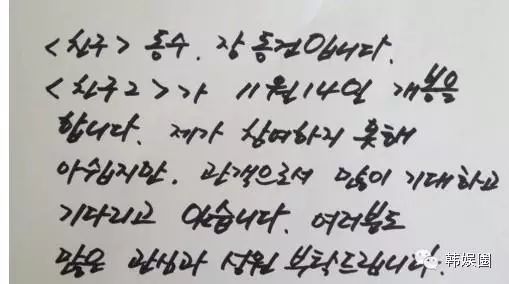 <친구> 동수. 장동건입니다.
<친구2>가 11월 14일 개봉을
합니다. 제가 참여하지 못해
아쉽지만. 관객으로서 많이 기대하고
기다리고 있습니다. 여러분도
많은 관심과 성원 부탁드립니다.
韩娱圈